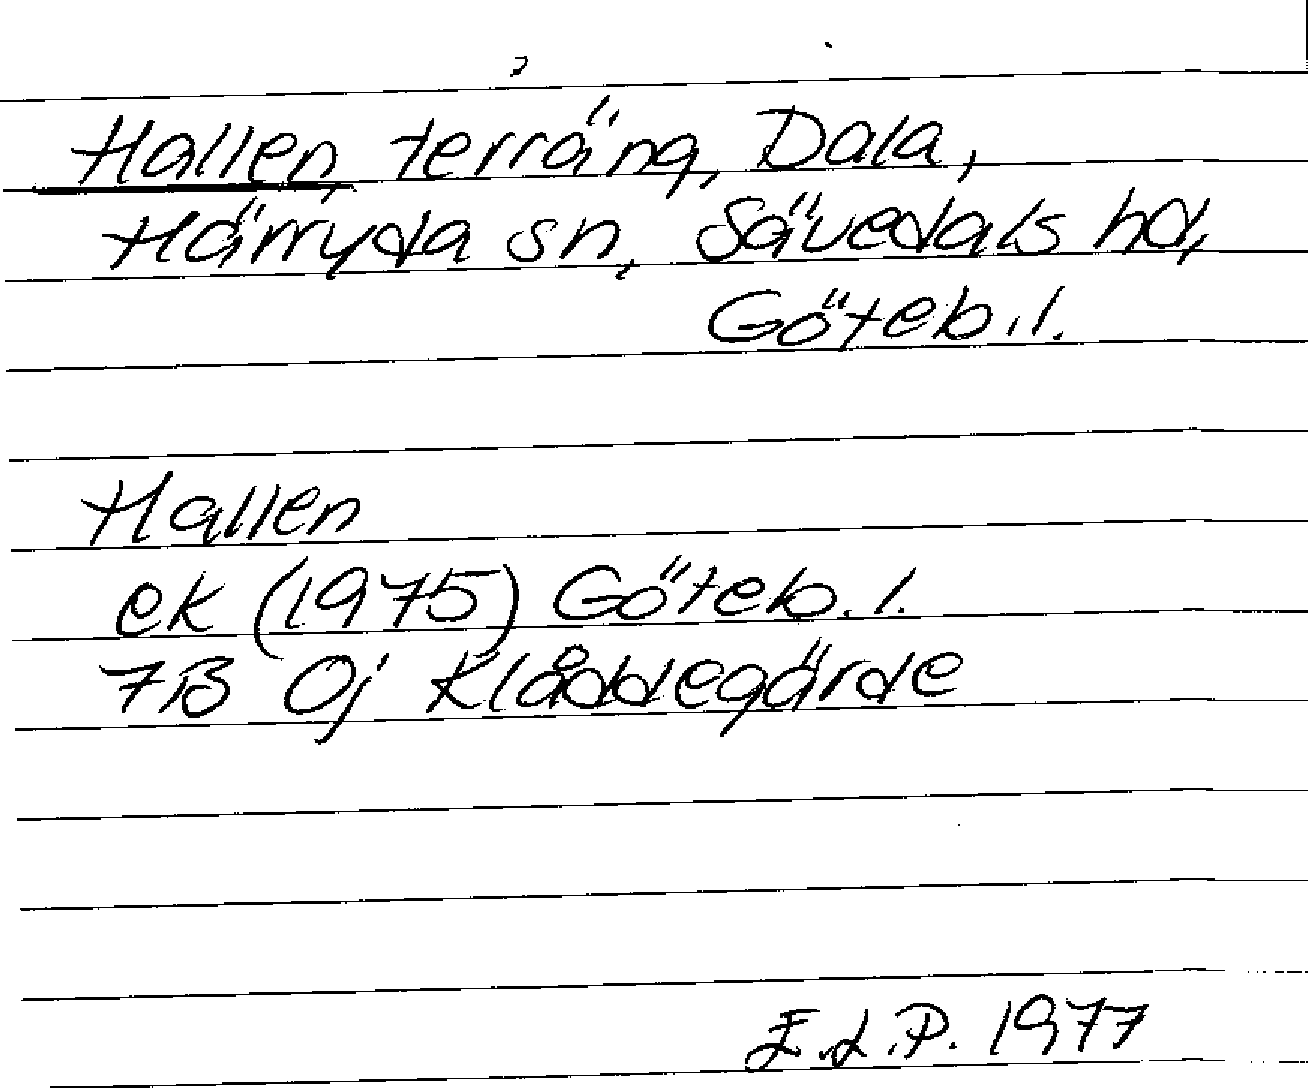 Hallen, terräng, Dala,
Härryda sn, Sävedals hd,
Göteb. l.
Hallen
ek (1975) Göteb. l.
7B 0j Klåddegärde
E.L.P. 1977